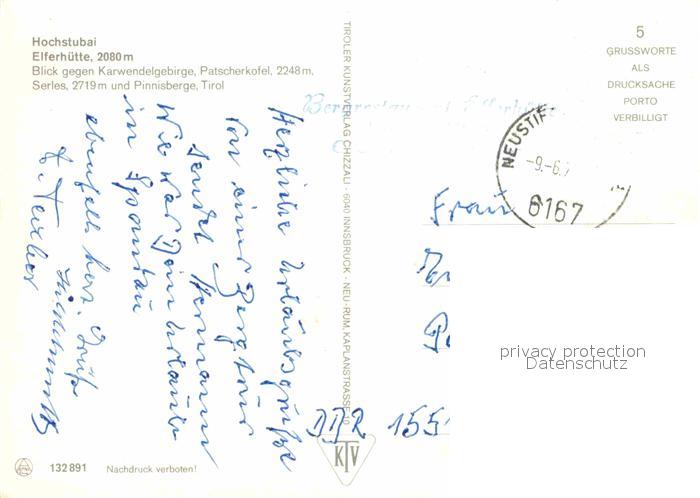 Hochstubai
Elferhütte, 2080 m
Blick gegen Karwendelgebirge, Patscherkofel, 2248 m,
Serles, 2719 m und Pinnisberge, Tirol
5
GRUSSWORTE
ALS
DRUCKSACHE
PORTO
VERBILLIGT
TIROLER KUNSTVERLAG CHIZZALI · 6040 INNSBRUCK - NEU-RUM, KAPLANSTRASSE 10
Elferhütte
NEUSTIF
-9.-6.7
6167
Herzliche Urlaubsgrüße
von einer Bergtour
sendet Hermann
Wie war Dein Urlaub
in Spandau
ebenfalls herz. Grüße
Frau
DDR 155
privacy protection
Datenschutz
KTV
132 891 Nachdruck verboten!